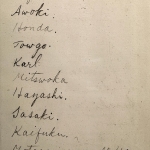 Awoki.
Honda.
Towgo.
Karl
Mitswoka
Hayashi.
Sasaki.
Kaifuku.